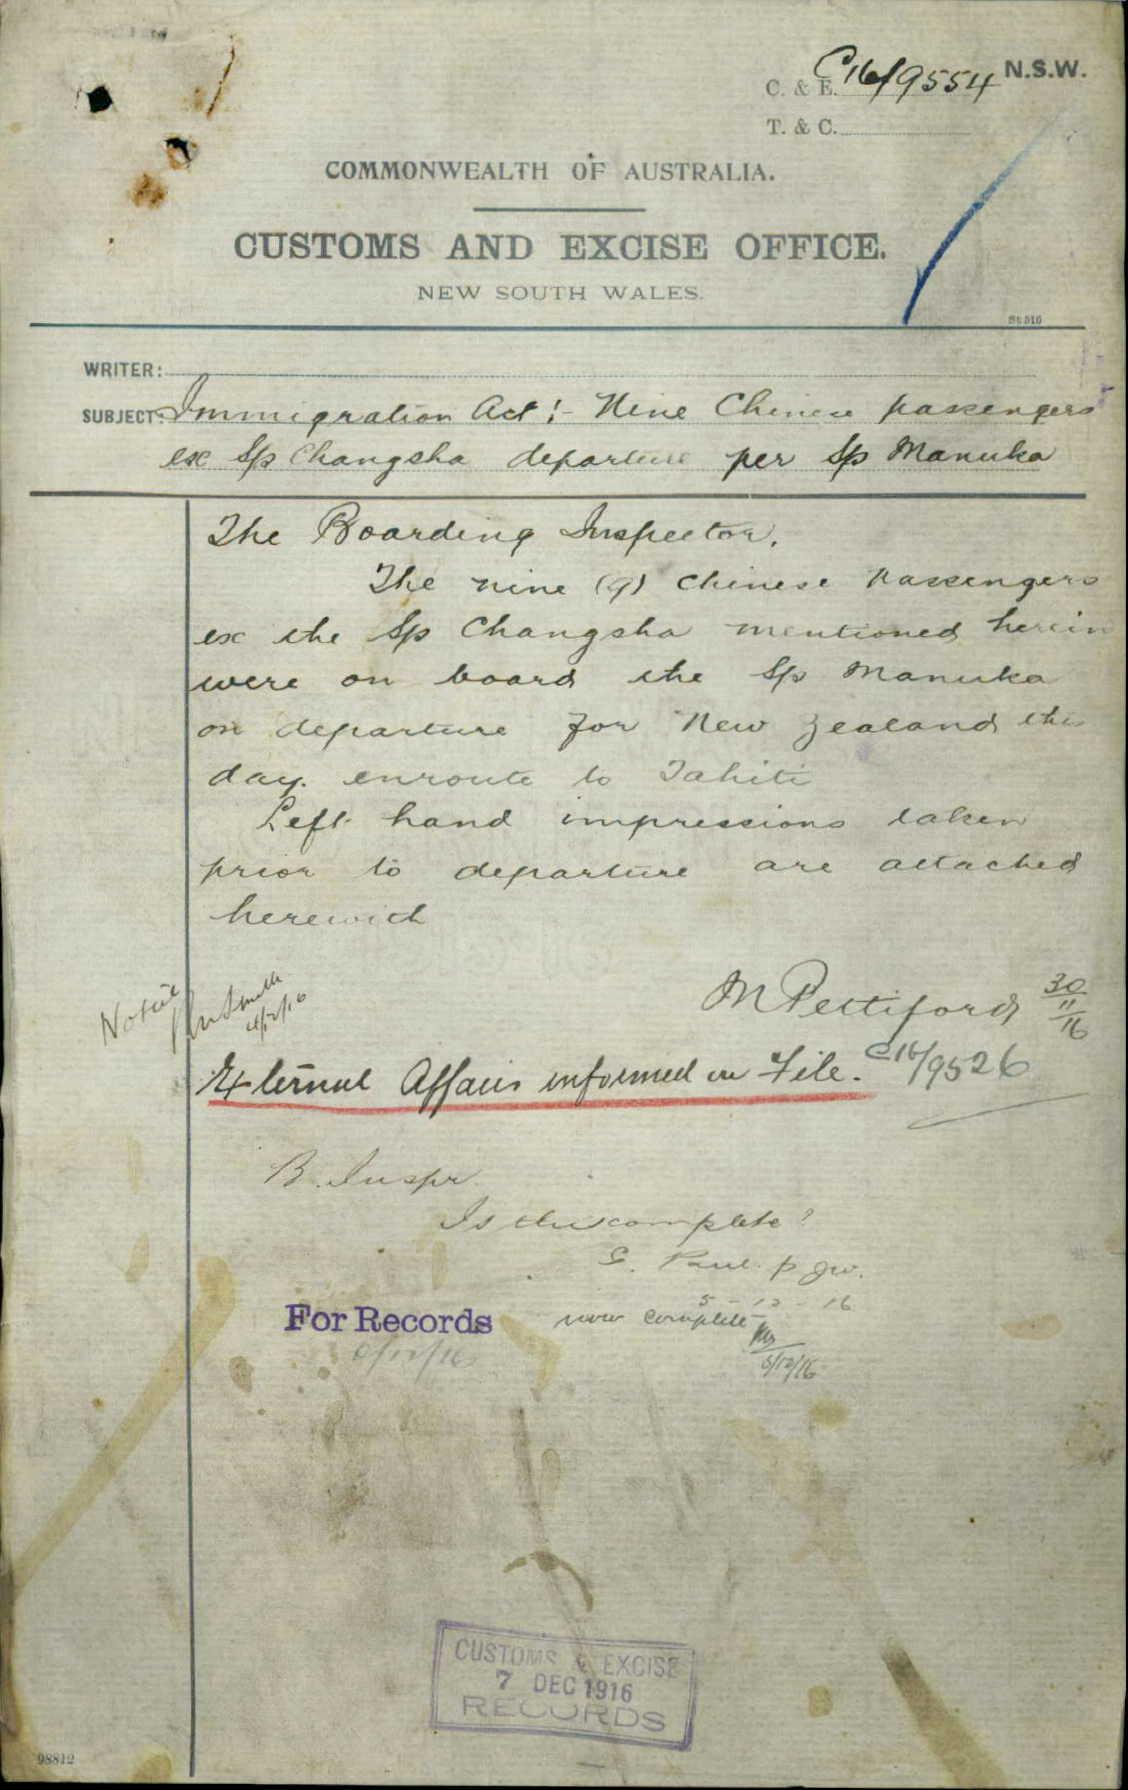 C. & E. C16/9554 N.S.W.
T. & C.
COMMONWEALTH OF AUSTRALIA.
CUSTOMS AND EXCISE OFFICE.
NEW SOUTH WALES.
WRITER:
SUBJECT: Immigration Act :- Nine Chinese passengers
ex Sp Changsha departure per Sp Manuka
The Boarding Inspector.
The nine (9) Chinese passengers
ex the Sp Changsha mentioned herein
were on board the Sp Manuka
on departure for New Zealand this
day. enroute to Tahiti
Left hand impressions taken
prior to departure are attached
herewith
M Pettiford 30/11/16
Noted
4/12/16
External Affairs informed on File. C16/9526
B. Inspr.
Is this complete?
5 - 12 - 16
For Records
now complete
6/12/16
5/12/16
CUSTOMS & EXCISE
7 DEC 1916
RECORDS
98812